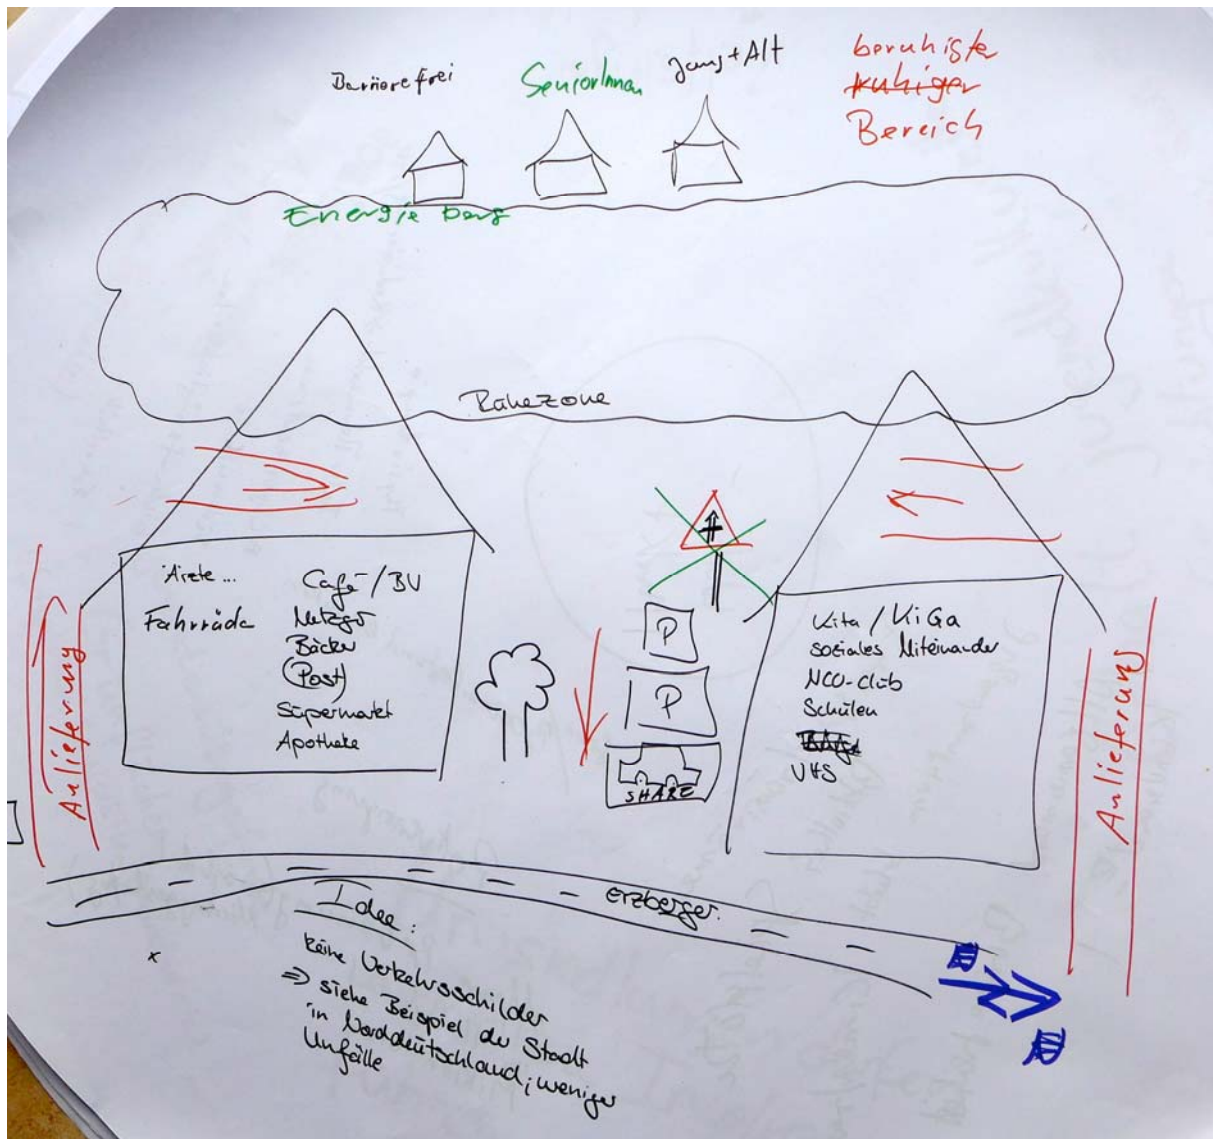 Barrierefrei
SeniorInnen
Jung + Alt
beruhigter
ruhiger
Bereich
Energie berg
Ruhezone
Ärzte ...
Fahrräder
Café / BV
Metzger
Bäcker
Post
Supermarkt
Apotheke
Anlieferung
P
P
SHARE
Kita / KiGa
soziales Miteinander
NCO-Club
Schulen
VHS
Anlieferung
Erzberger.
Idee:
keine Verkehrsschilder
⇒ siehe Beispiel der Stadt
in Norddeutschland; weniger
Unfälle